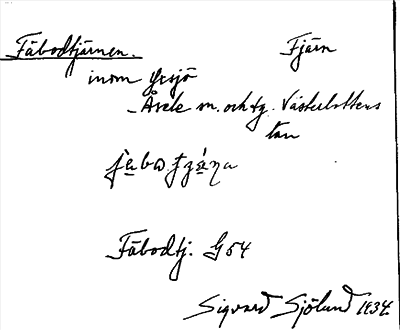 Fäbodtjärnen. Tjärn
inom Gesjö
Åsele sn. och tg. Västerbottens
län
Fäbodtj. G 54
Sigvard Sjölund 1934.